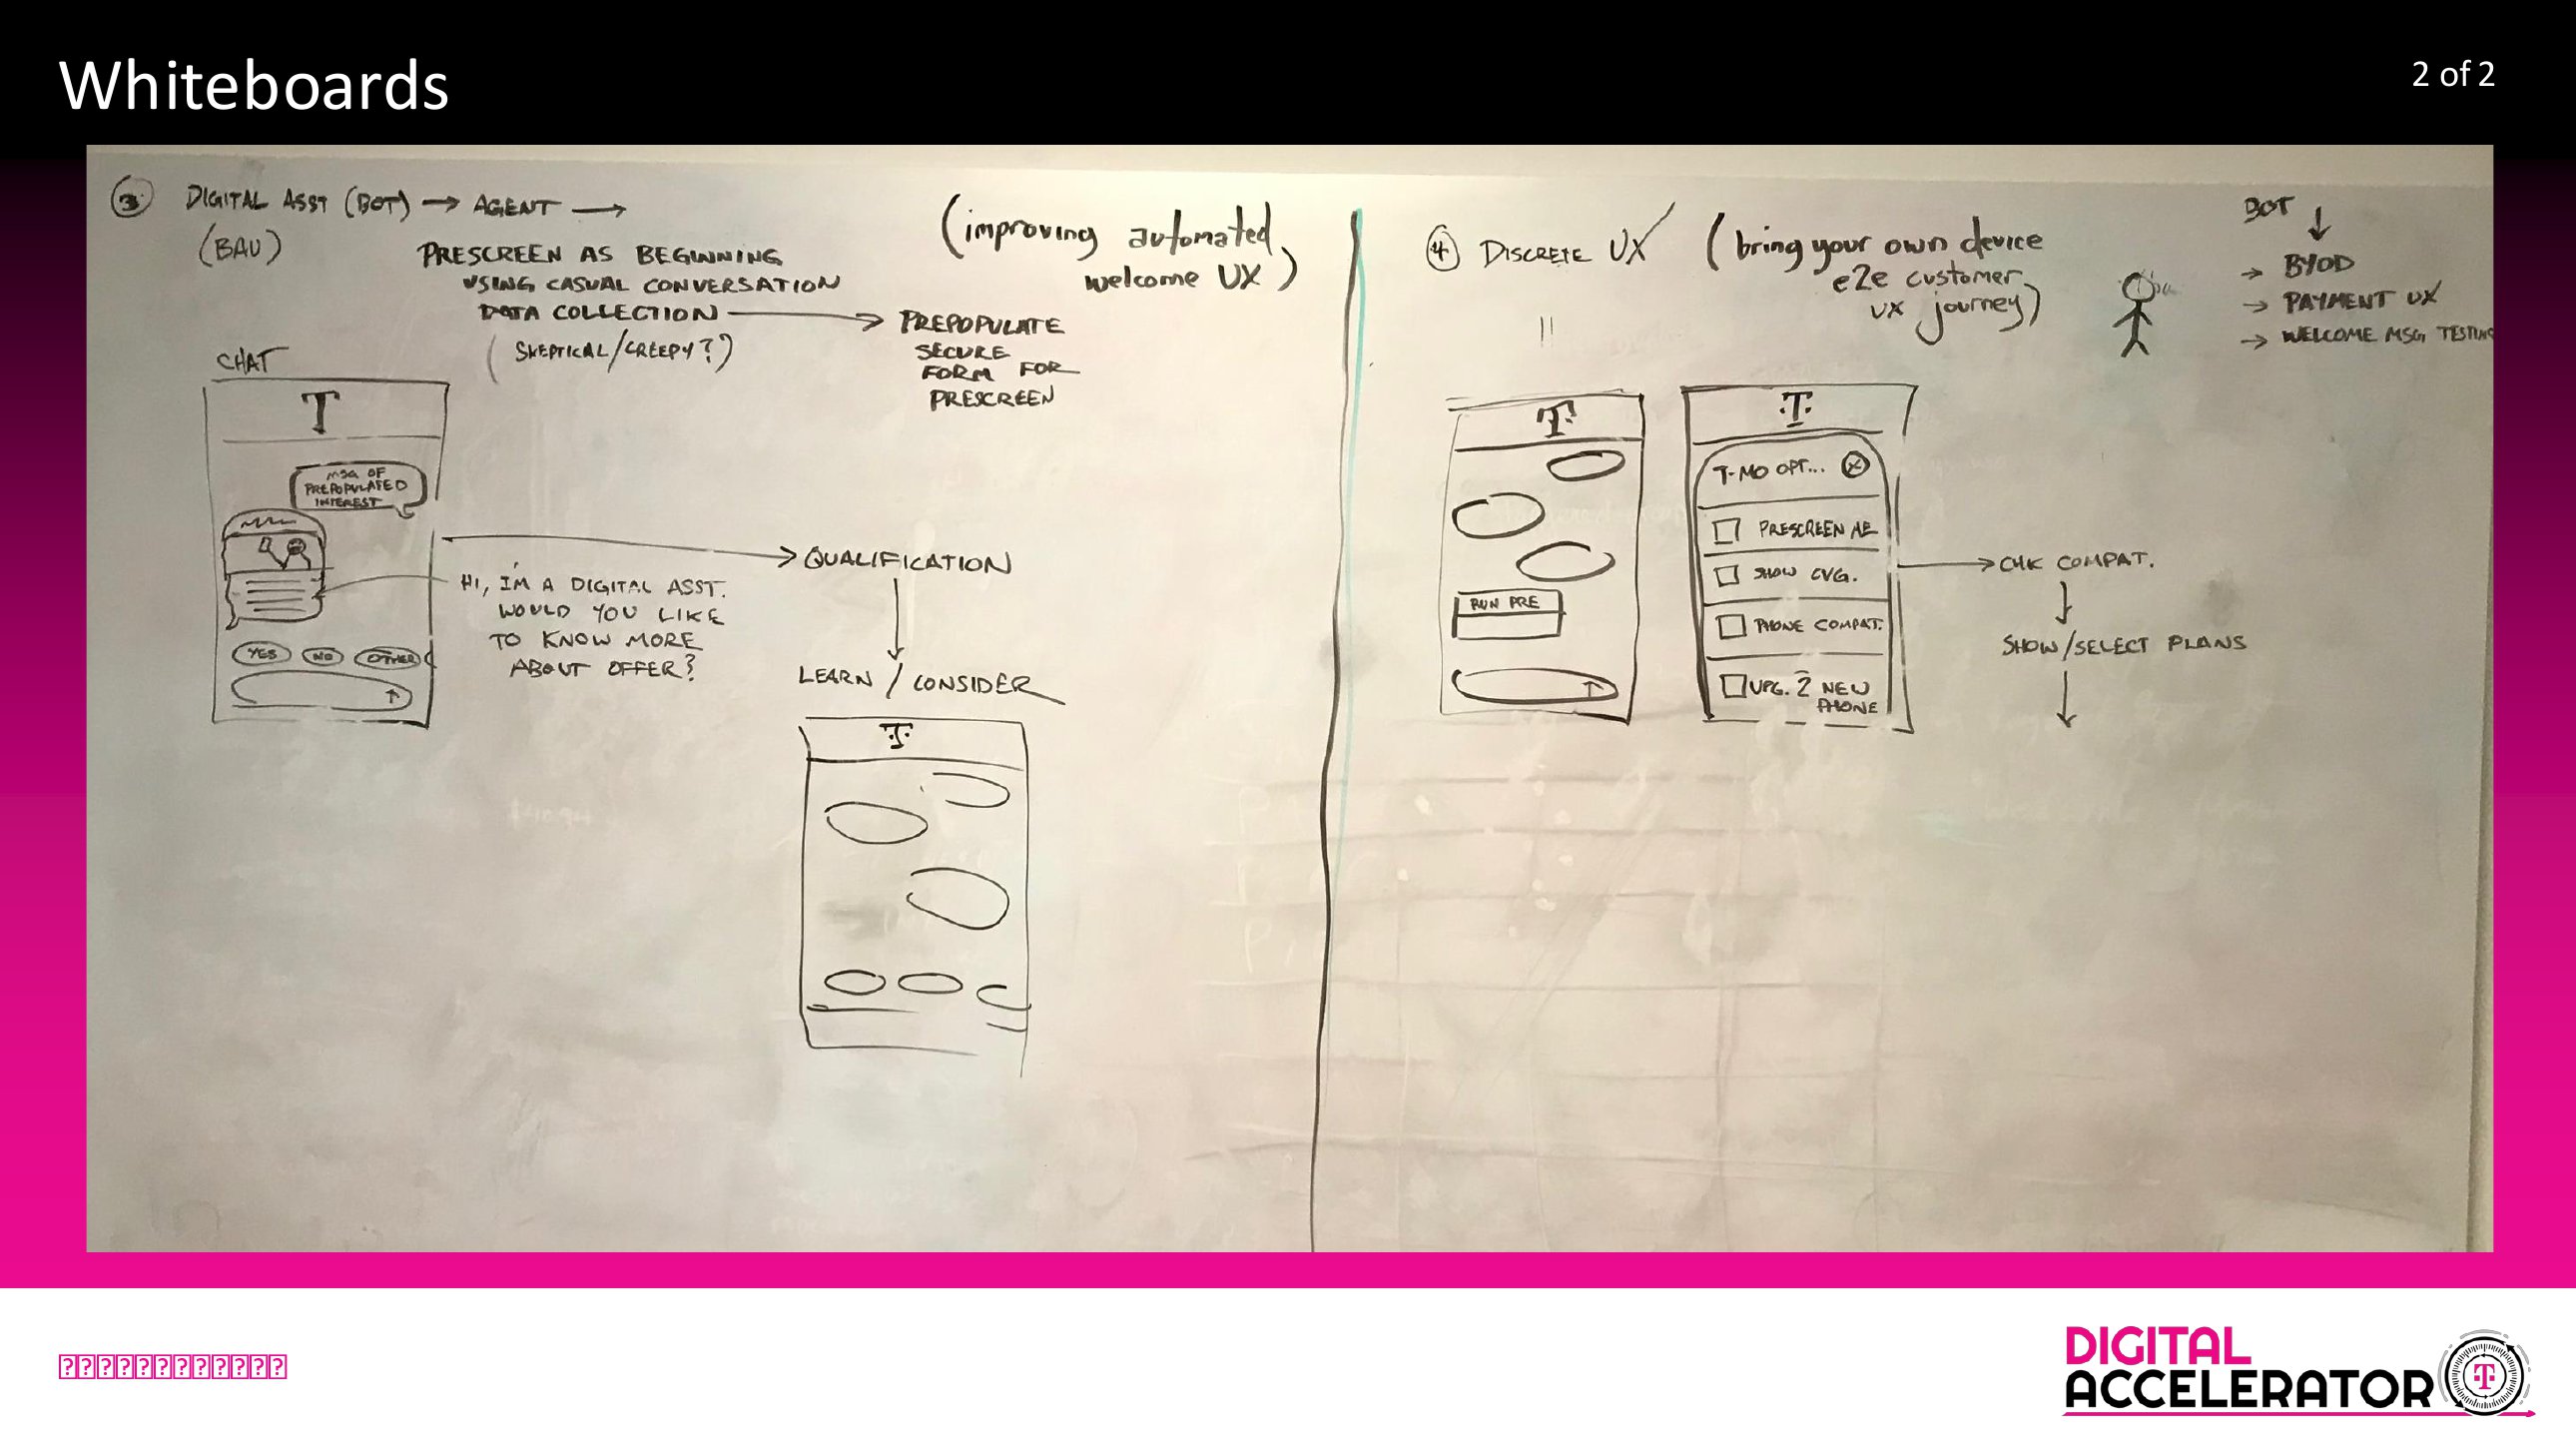 Whiteboards
2 of 2
3 DIGITAL ASST (BOT) → AGENT →
(BAU)
PRESCREEN AS BEGINNING
USING CASUAL CONVERSATION
DATA COLLECTION → PREPOPULATE
SECURE
FORM FOR
PRESCREEN
(SKEPTICAL/CREEPY?)
(improving automated
welcome UX)
CHAT
T
MSG OF
PREPOPULATED
INTEREST
HI, I'M A DIGITAL ASST.
WOULD YOU LIKE
TO KNOW MORE
ABOUT OFFER?
YES NO OTHER
→ QUALIFICATION
LEARN / CONSIDER
T
4 DISCRETE UX (bring your own device
e2e customer
ux journey)
BOT
→ BYOD
→ PAYMENT UX
→ WELCOME MSG TESTING
T
RUN PRE
T
T-MO OPT...
PRESCREEN ME
SHOW CVG.
PHONE COMPAT.
UPG. 2 NEW
PHONE
→ CHK COMPAT.
SHOW/SELECT PLANS
DIGITAL
ACCELERATOR
T